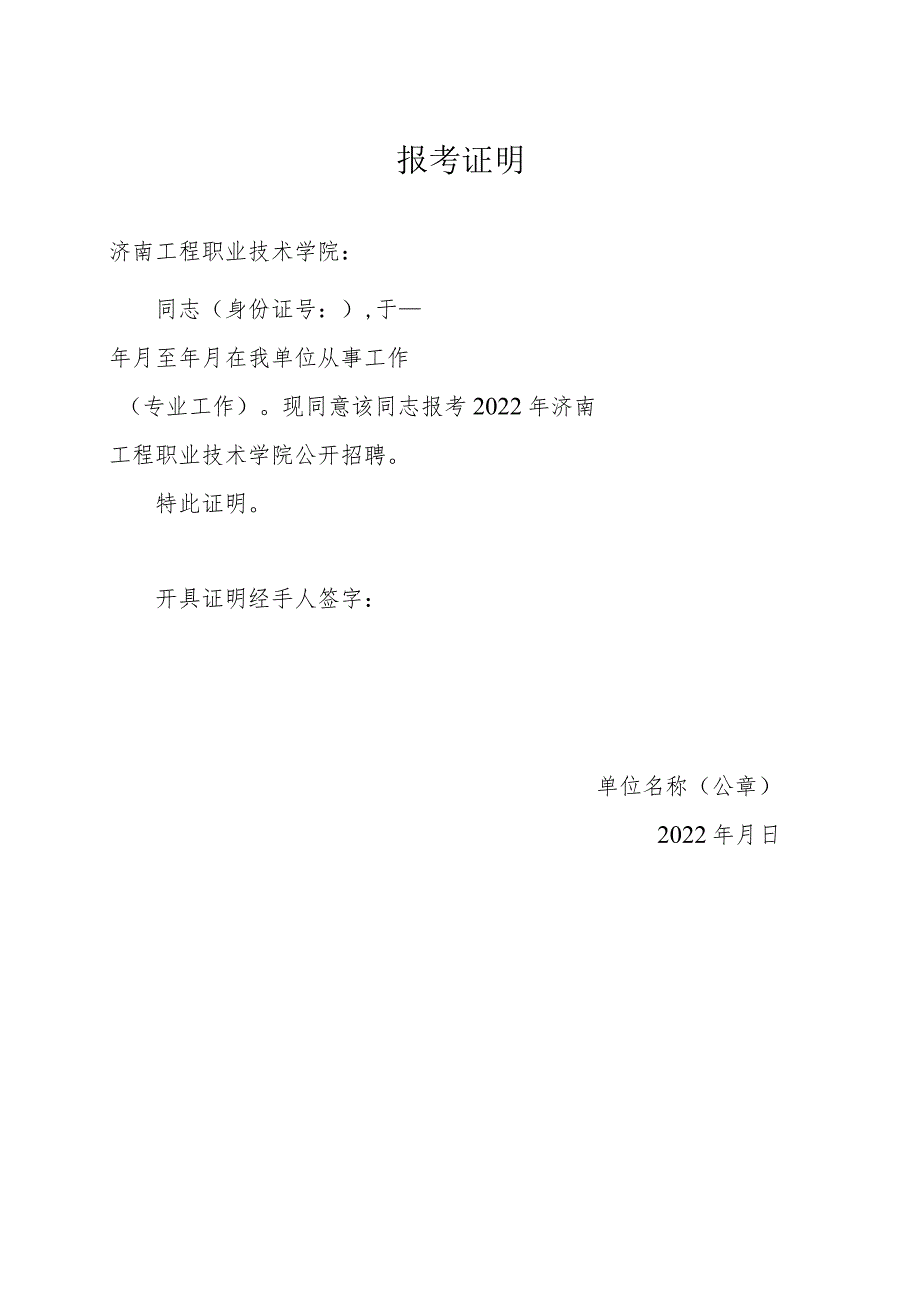 报考证明
济南工程职业技术学院：
同志（身份证号：）,于—
年月至年月在我单位从事工作
（专业工作）。现同意该同志报考 2022 年济南
工程职业技术学院公开招聘。
特此证明。
开具证明经手人签字：
单位名称（公章）
2022 年月日